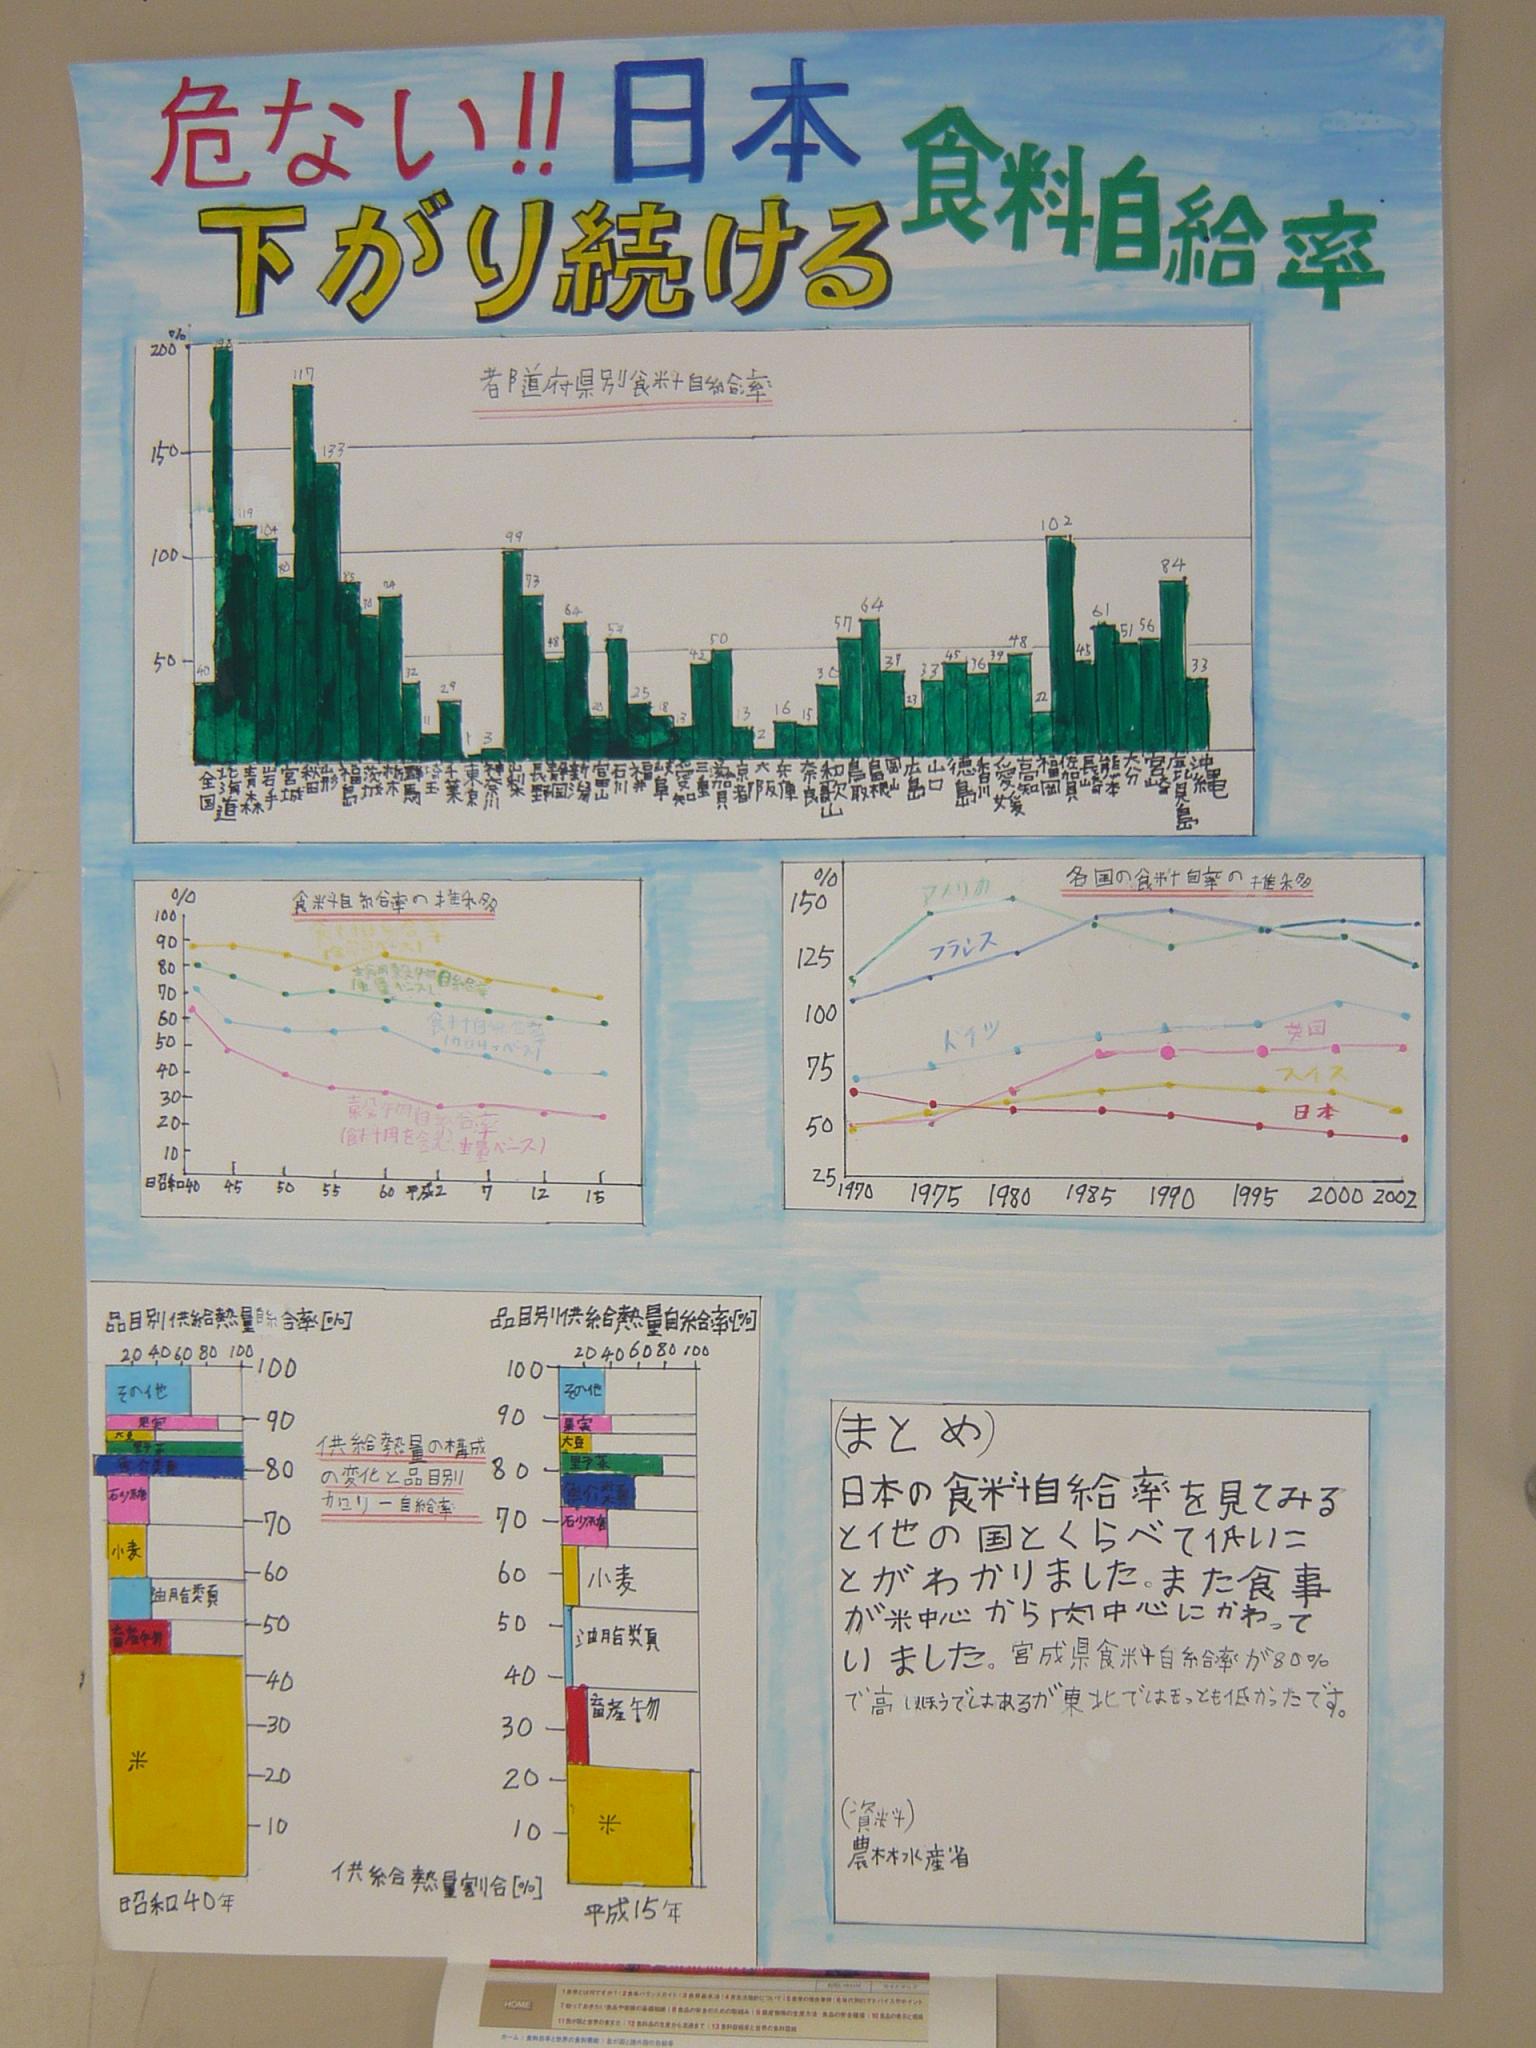 危ない!! 日本
食料自給率
下がり続ける
%
200
150
100
50
都道府県別食料自給率
40
119
104
80
117
133
85
70
74
32
11
29
1
3
99
73
48
64
25
18
13
42
50
13
2
16
15
30
57
64
39
23
33
45
36
39
48
22
102
45
61
51
56
84
33
全国
北海道
青森
岩手
宮城
秋田
山形
福島
茨城
栃木
群馬
埼玉
千葉
東京
神奈川
山梨
長野
静岡
新潟
富山
石川
福井
岐阜
愛知
三重
滋賀
京都
大阪
兵庫
奈良
和歌山
鳥取
島根
岡山
広島
山口
徳島
香川
愛媛
高知
福岡
佐賀
長崎
熊本
大分
宮崎
鹿児島
沖縄
食料自給率の推移
%
100
90
80
70
60
50
40
30
20
10
主食用穀物自給率
(重量ベース)
食料自給率
(カロリーベース)
穀物自給率
(飼料用を含む、重量ベース)
昭和40 45 50 55 60 平成2 7 12 15
各国の食料自率の推移
%
150
125
100
75
50
25
アメリカ
フランス
ドイツ
英国
スイス
日本
1970 1975 1980 1985 1990 1995 2000 2002
品目別供給熱量自給率[%]
20 40 60 80 100
100
90
80
70
60
50
40
30
20
10
その他
果実
大豆
野菜
魚介類
砂糖
小麦
油脂類
畜産物
米
昭和40年
供給熱量の構成
の変化と品目別
カロリー自給率
供給熱量割合[%]
品目別供給熱量自給率[%]
20 40 60 80 100
100
90
80
70
60
50
40
30
20
10
その他
果実
大豆
野菜
魚介類
砂糖
小麦
油脂類
畜産物
米
平成15年
(まとめ)
日本の食料自給率を見てみる
と他の国とくらべて低いこ
とがわかりました。また食事
が米中心から肉中心にかわって
いました。宮成県食料自給率が80%
で高いほうではあるが東北ではもっとも低かったです。
(資料)
農林水産省
HOME